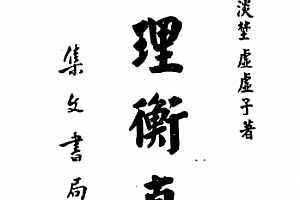 淡埜虛虛子著
理衡真
集文書局